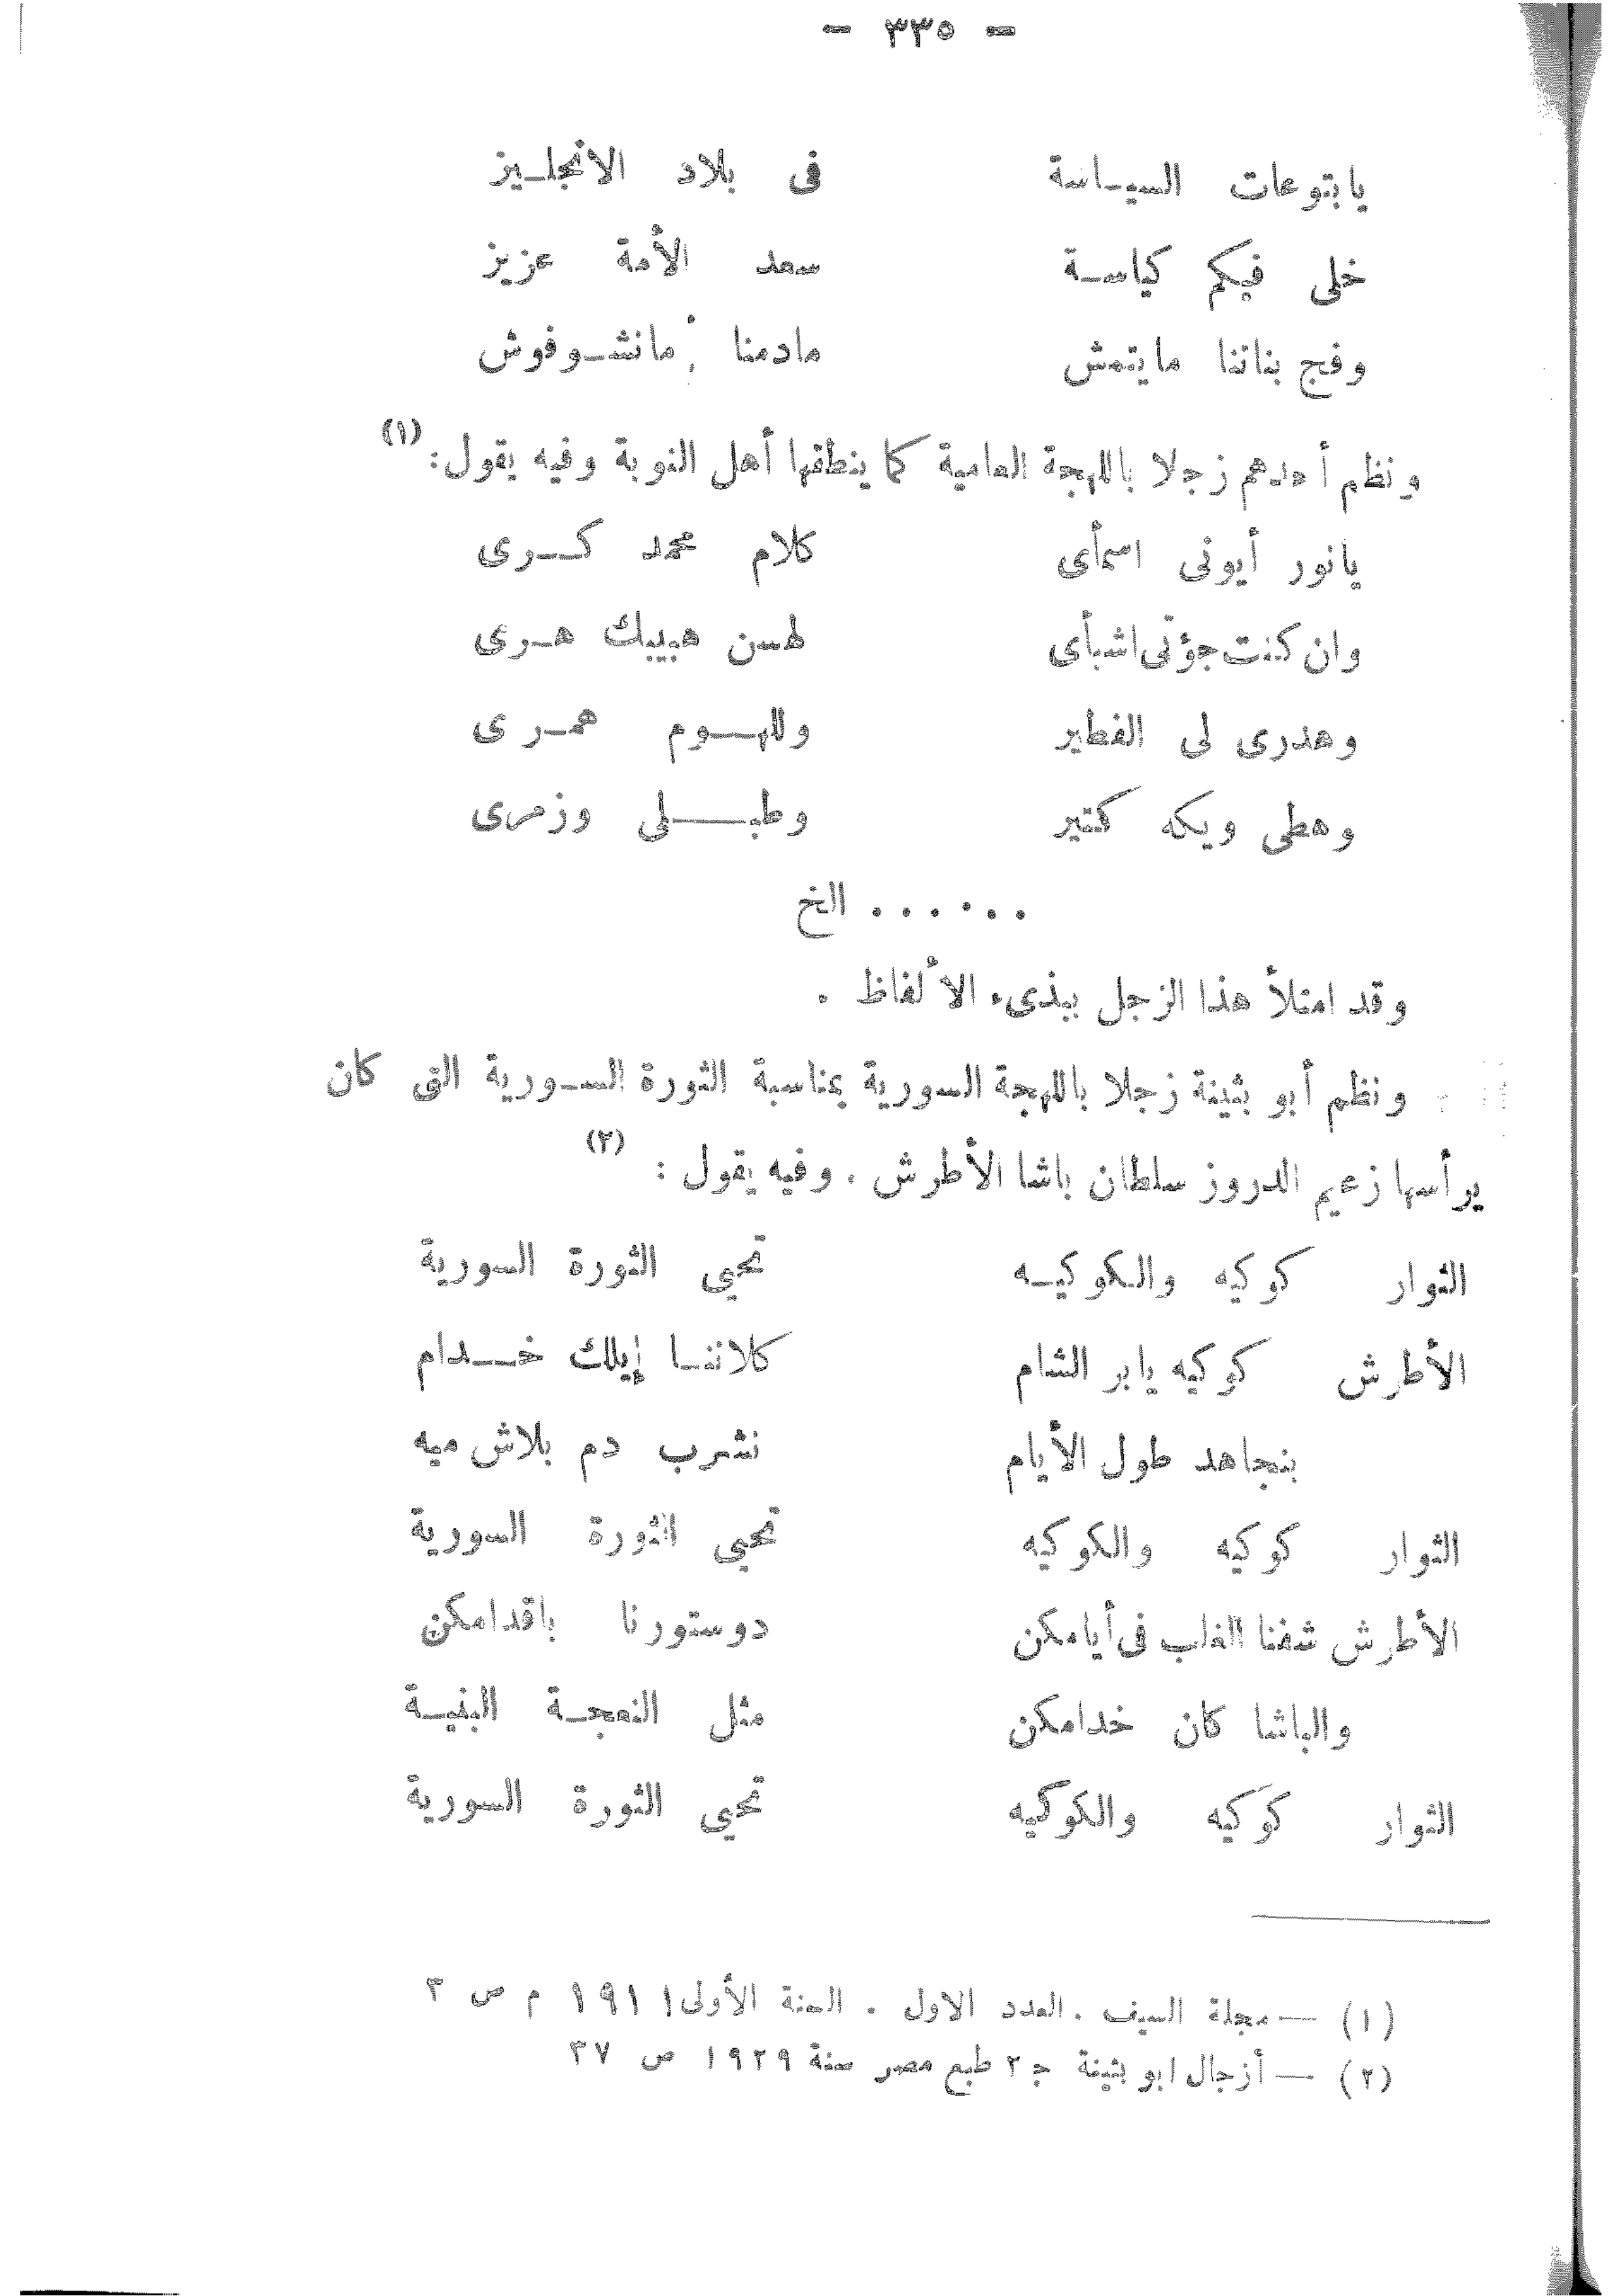 - ٣٣٥ -
يا بتوعات السياسة في بلاد الانجليز
خلى فيكم كياسة سعد الأمة عزيز
وفج بناتنا ما يتمش مادمنا مانشوفوش
ونظم أحدهم زجلا باللهجة العامية كما ينطقها أهل النوبة وفيه يقول: (١)
يانور أيونى اسمأى كلام محمد كرى
وان كنت جؤتى اشبأى لهسن هبيبك هرى
وهدرى لى الفطير واللهوم همرى
وهطى ويكه كتير وطبلى وزمرى
...... الخ
وقد امتلأ هذا الزجل ببذىء الألفاظ .
ونظم أبو بثينة زجلا باللهجة السورية بمناسبة الثورة السورية التى كان
يرأسها زعيم الدروز سلطان باشا الأطرش . وفيه يقول : (٢)
الثوار كوكيه والكوكيه تحيى الثورة السورية
الأطرش كوكيه يا بر الشام كلاتنا إيلك خدام
بنجاهد طول الأيام نشرب دم بلاش ميه
الثوار كوكيه والكوكيه تحيى الثورة السورية
الأطرش شفنا الغلب فى أيامكن دوستورنا باقدامكن
والباشا كان خدامكن مثل النعجة البنية
الثوار كوكيه والكوكيه تحيى الثورة السورية
(١) — مجلة السيف . العدد الاول . السنة الأولى ١٩١١ م ص ٣
(٢) — أزجال ابو بثينة ج ٢ طبع مصر سنة ١٩٢٩ ص ٣٧